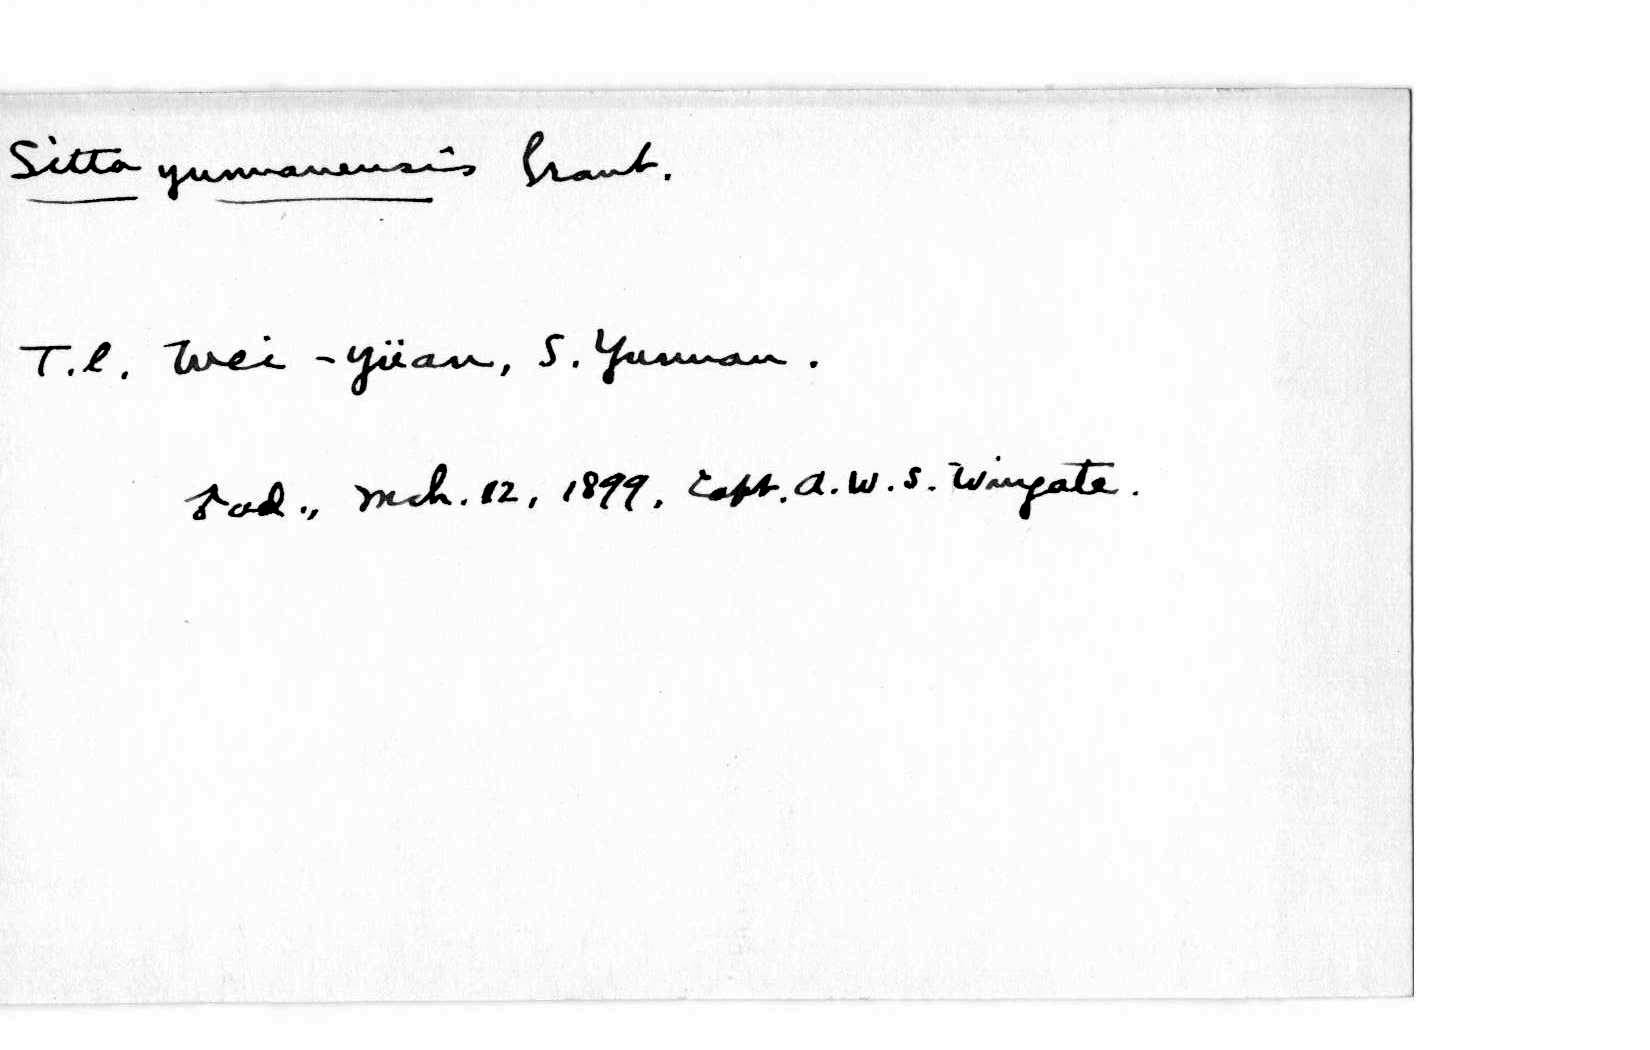 Sitta yunnanensis Grant.
T.l. Wei-yüan, S. Yunnan.
♂ ad., Mch. 12, 1899, Capt. A.W.S. Wingate.